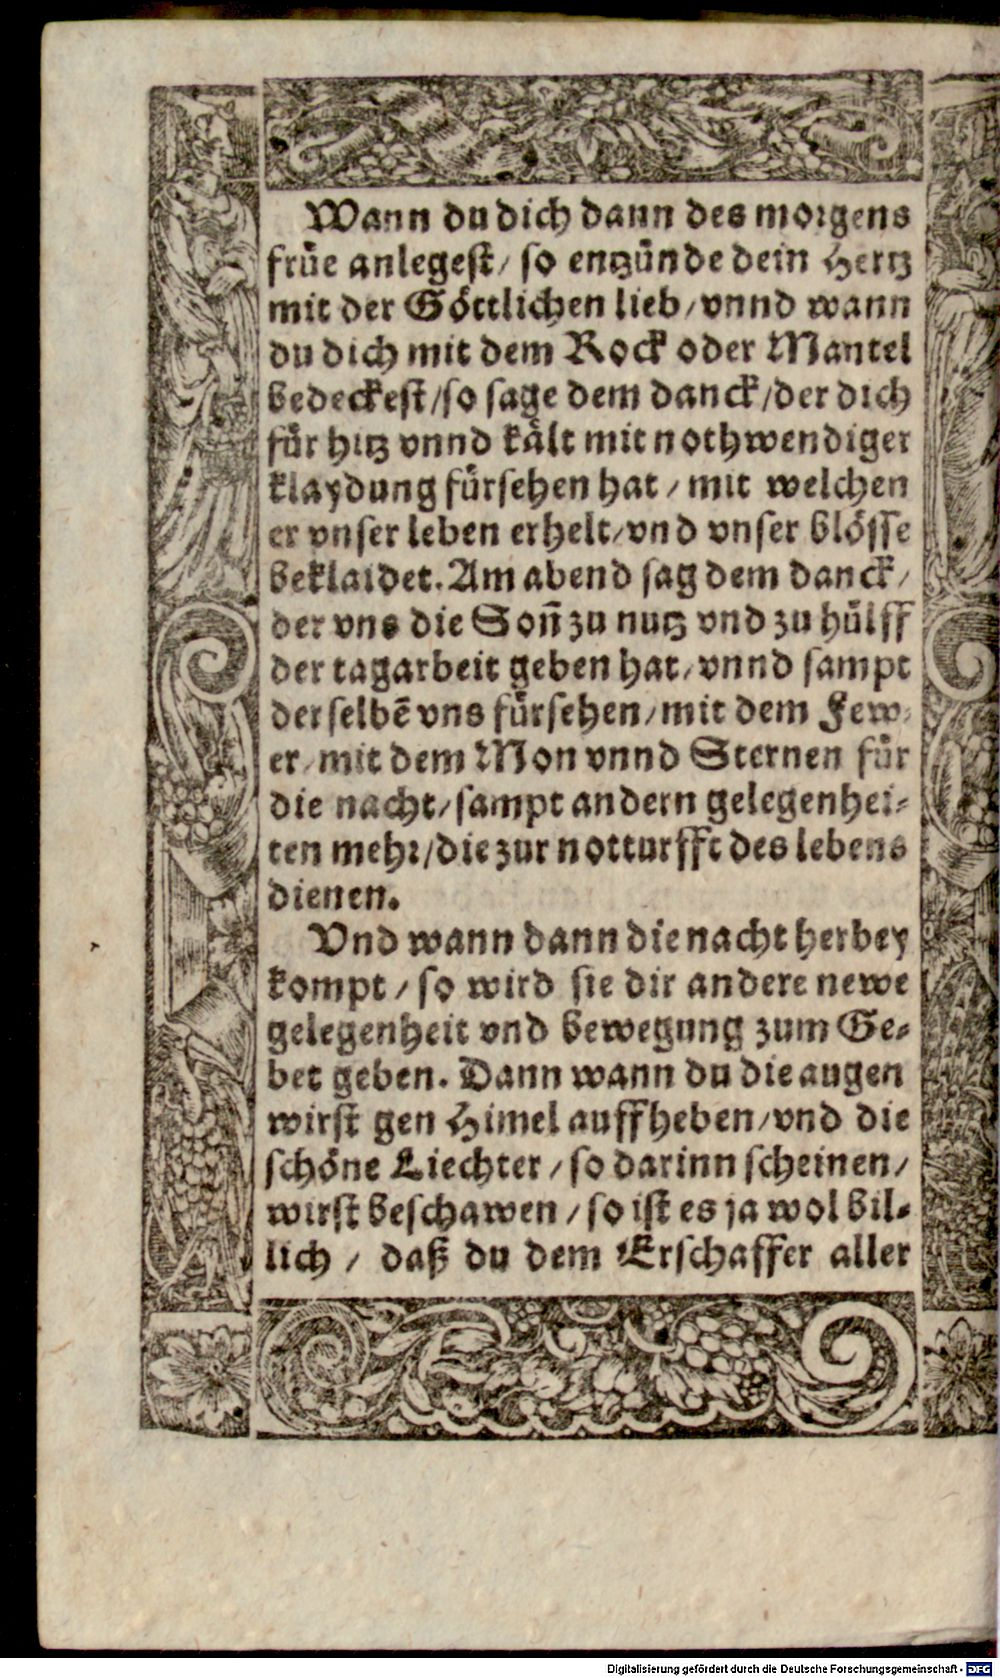 Wann du dich dann des morgens
früe anlegest/ so entzünde dein Hertz
mit der Göttlichen lieb/ vnnd wann
du dich mit dem Rock oder Mantel
bedeckest/ so sage dem danck/ der dich
für hitz vnnd kält mit nothwendiger
klaydung fürsehen hat/ mit welchen
er vnser leben erhelt/ vnd vnser blösse
beklaidet. Am abend sag dem danck/
der vns die Son̄ zu nutz vnd zu hülff
der tagarbeit geben hat/ vnnd sampt
derselbē vns fürsehen/ mit dem Few-
er/ mit dem Mon vnnd Sternen für
die nacht/ sampt andern gelegenhei-
ten mehr/ die zur notturfft des lebens
dienen.
Vnd wann dann die nacht herbey
kompt/ so wird sie dir andere newe
gelegenheit vnd bewegung zum Ge-
bet geben. Dann wann du die augen
wirst gen Himel auffheben/ vnd die
schöne Liechter/ so darinn scheinen/
wirst beschawen/ so ist es ja wol bil-
lich/ daß du dem Erschaffer aller
Digitalisierung gefördert durch die Deutsche Forschungsgemeinschaft - DFG